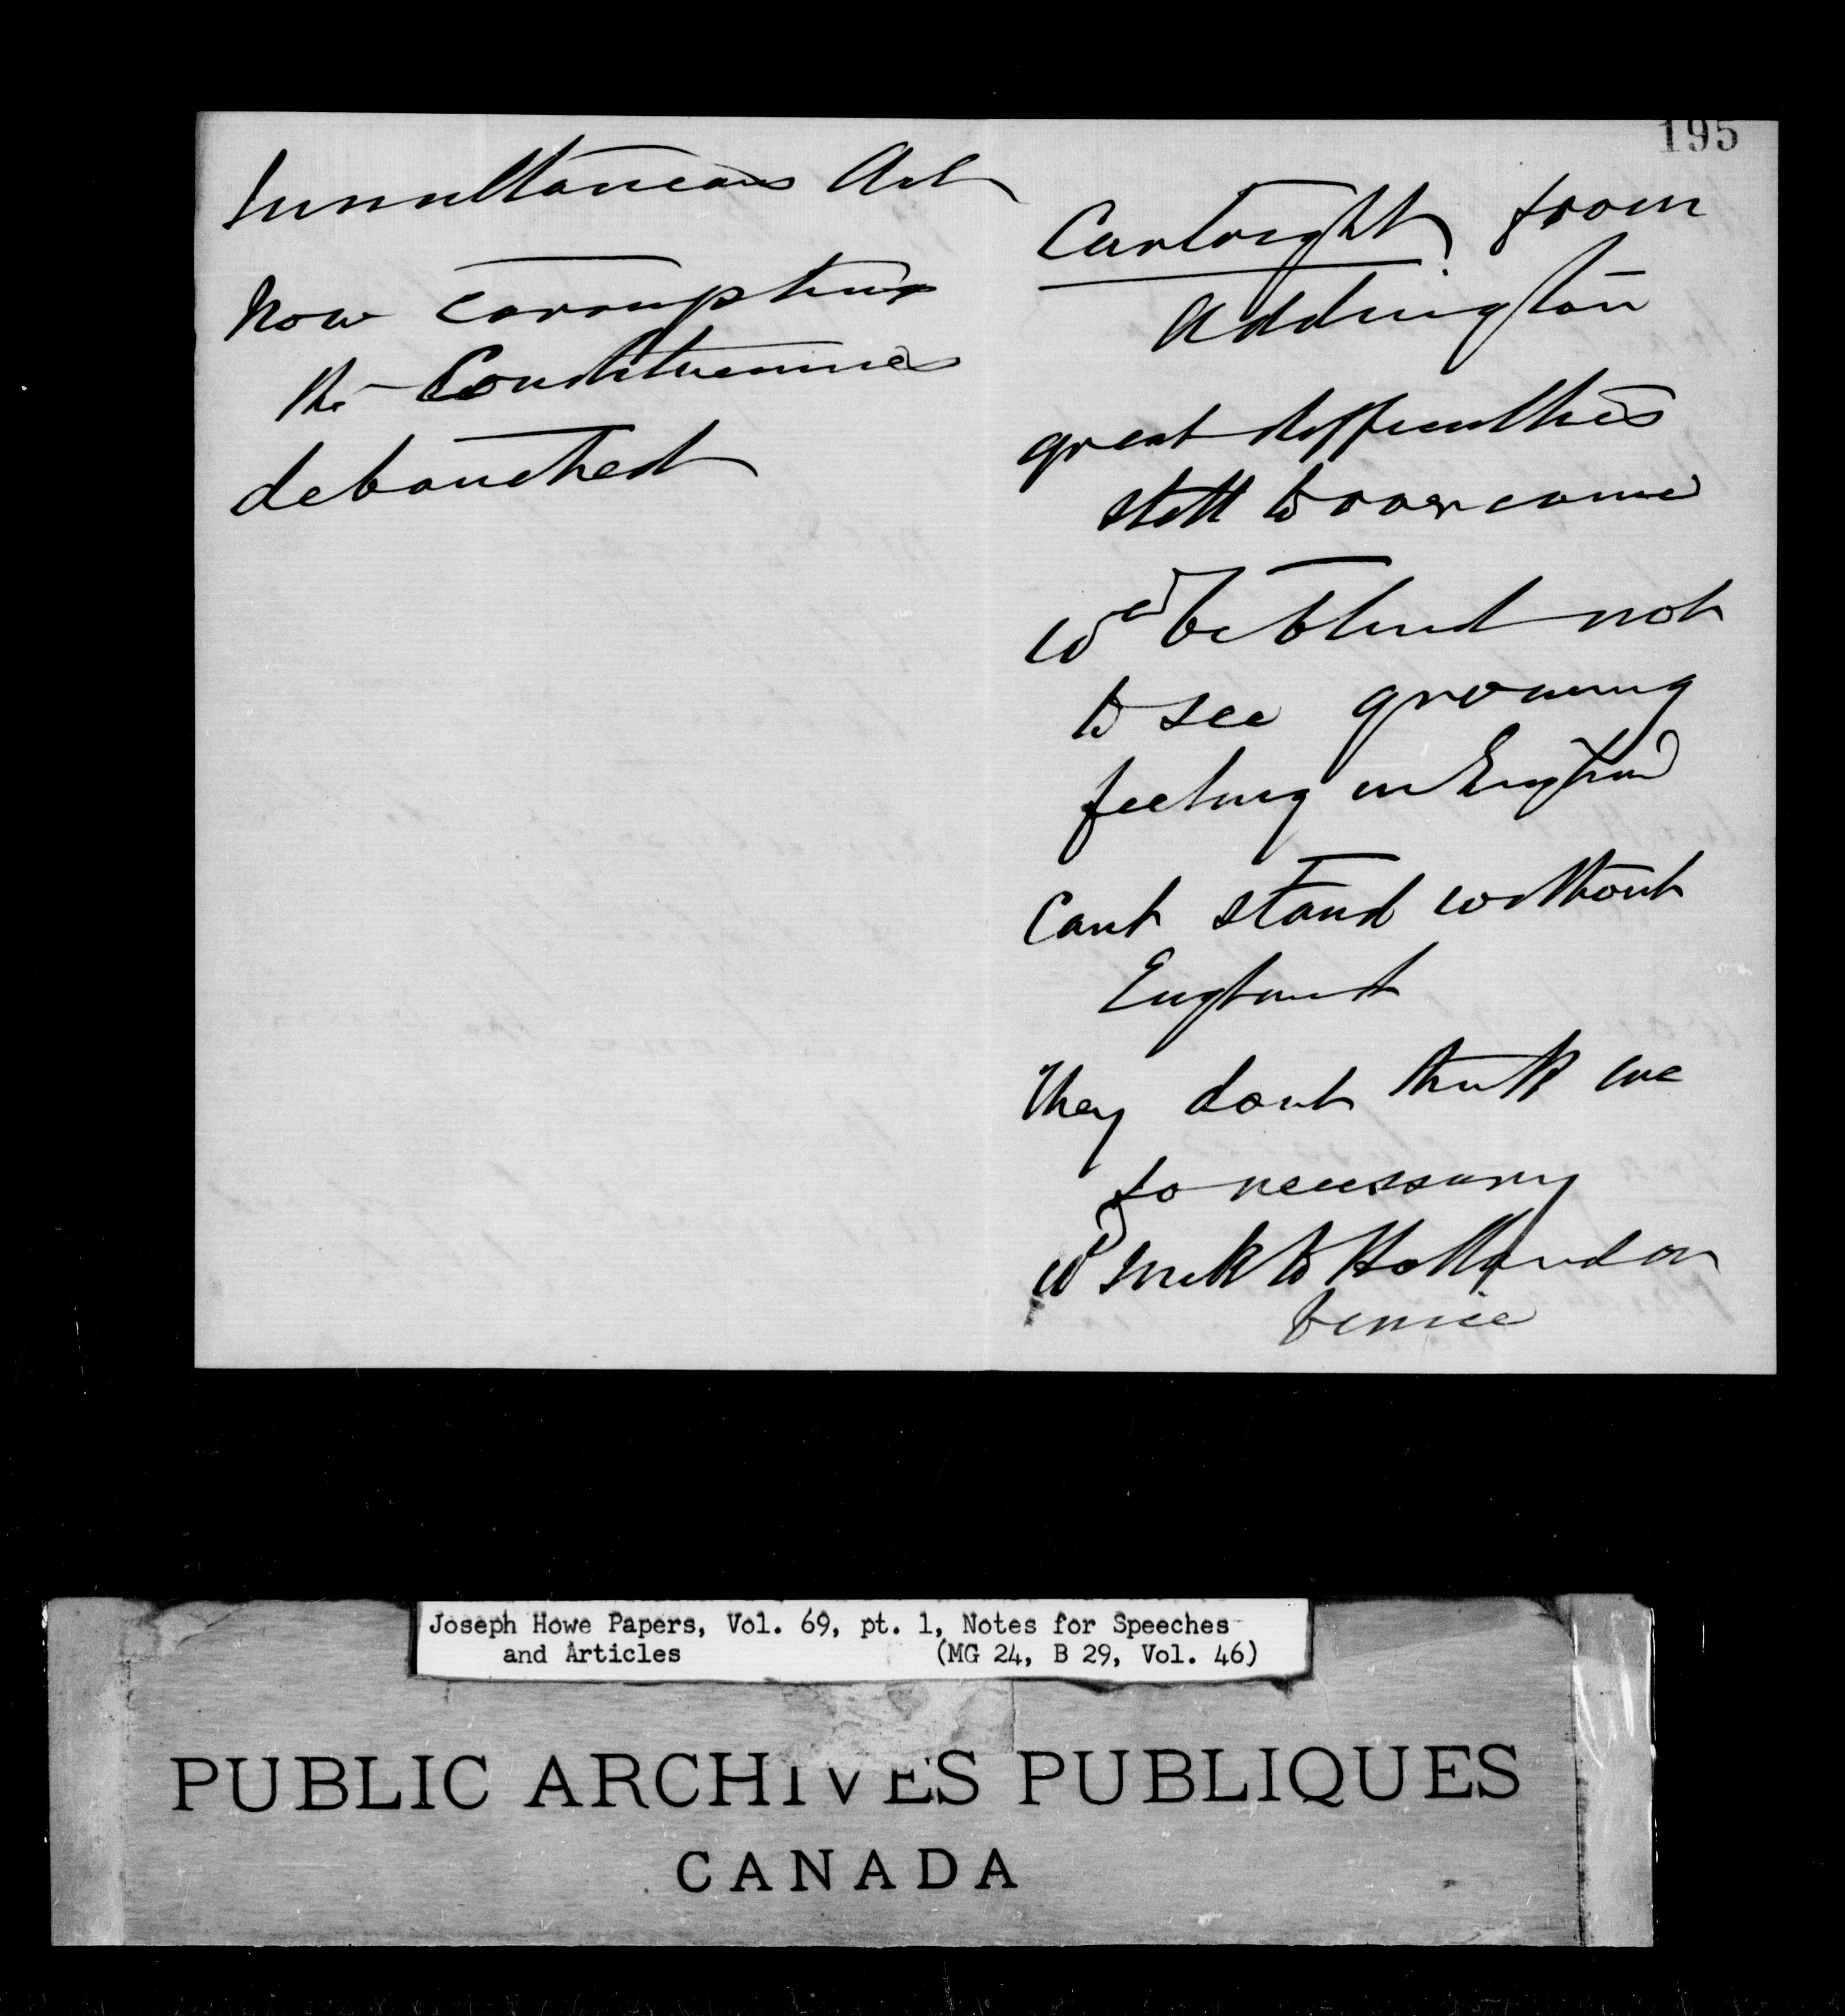 Simultaneous Act
now corruption
the Constituencies
debauched
195
Cartwright from
Addington
great difficulties
still to overcome
wd be blind not
to see growing
feeling in England
Cant stand without
England
They dont think we
so necessary
wd sink to Holland or
Venice
Joseph Howe Papers, Vol. 69, pt. 1, Notes for Speeches
and Articles (MG 24, B 29, Vol. 46)
PUBLIC ARCHIVES PUBLIQUES
CANADA